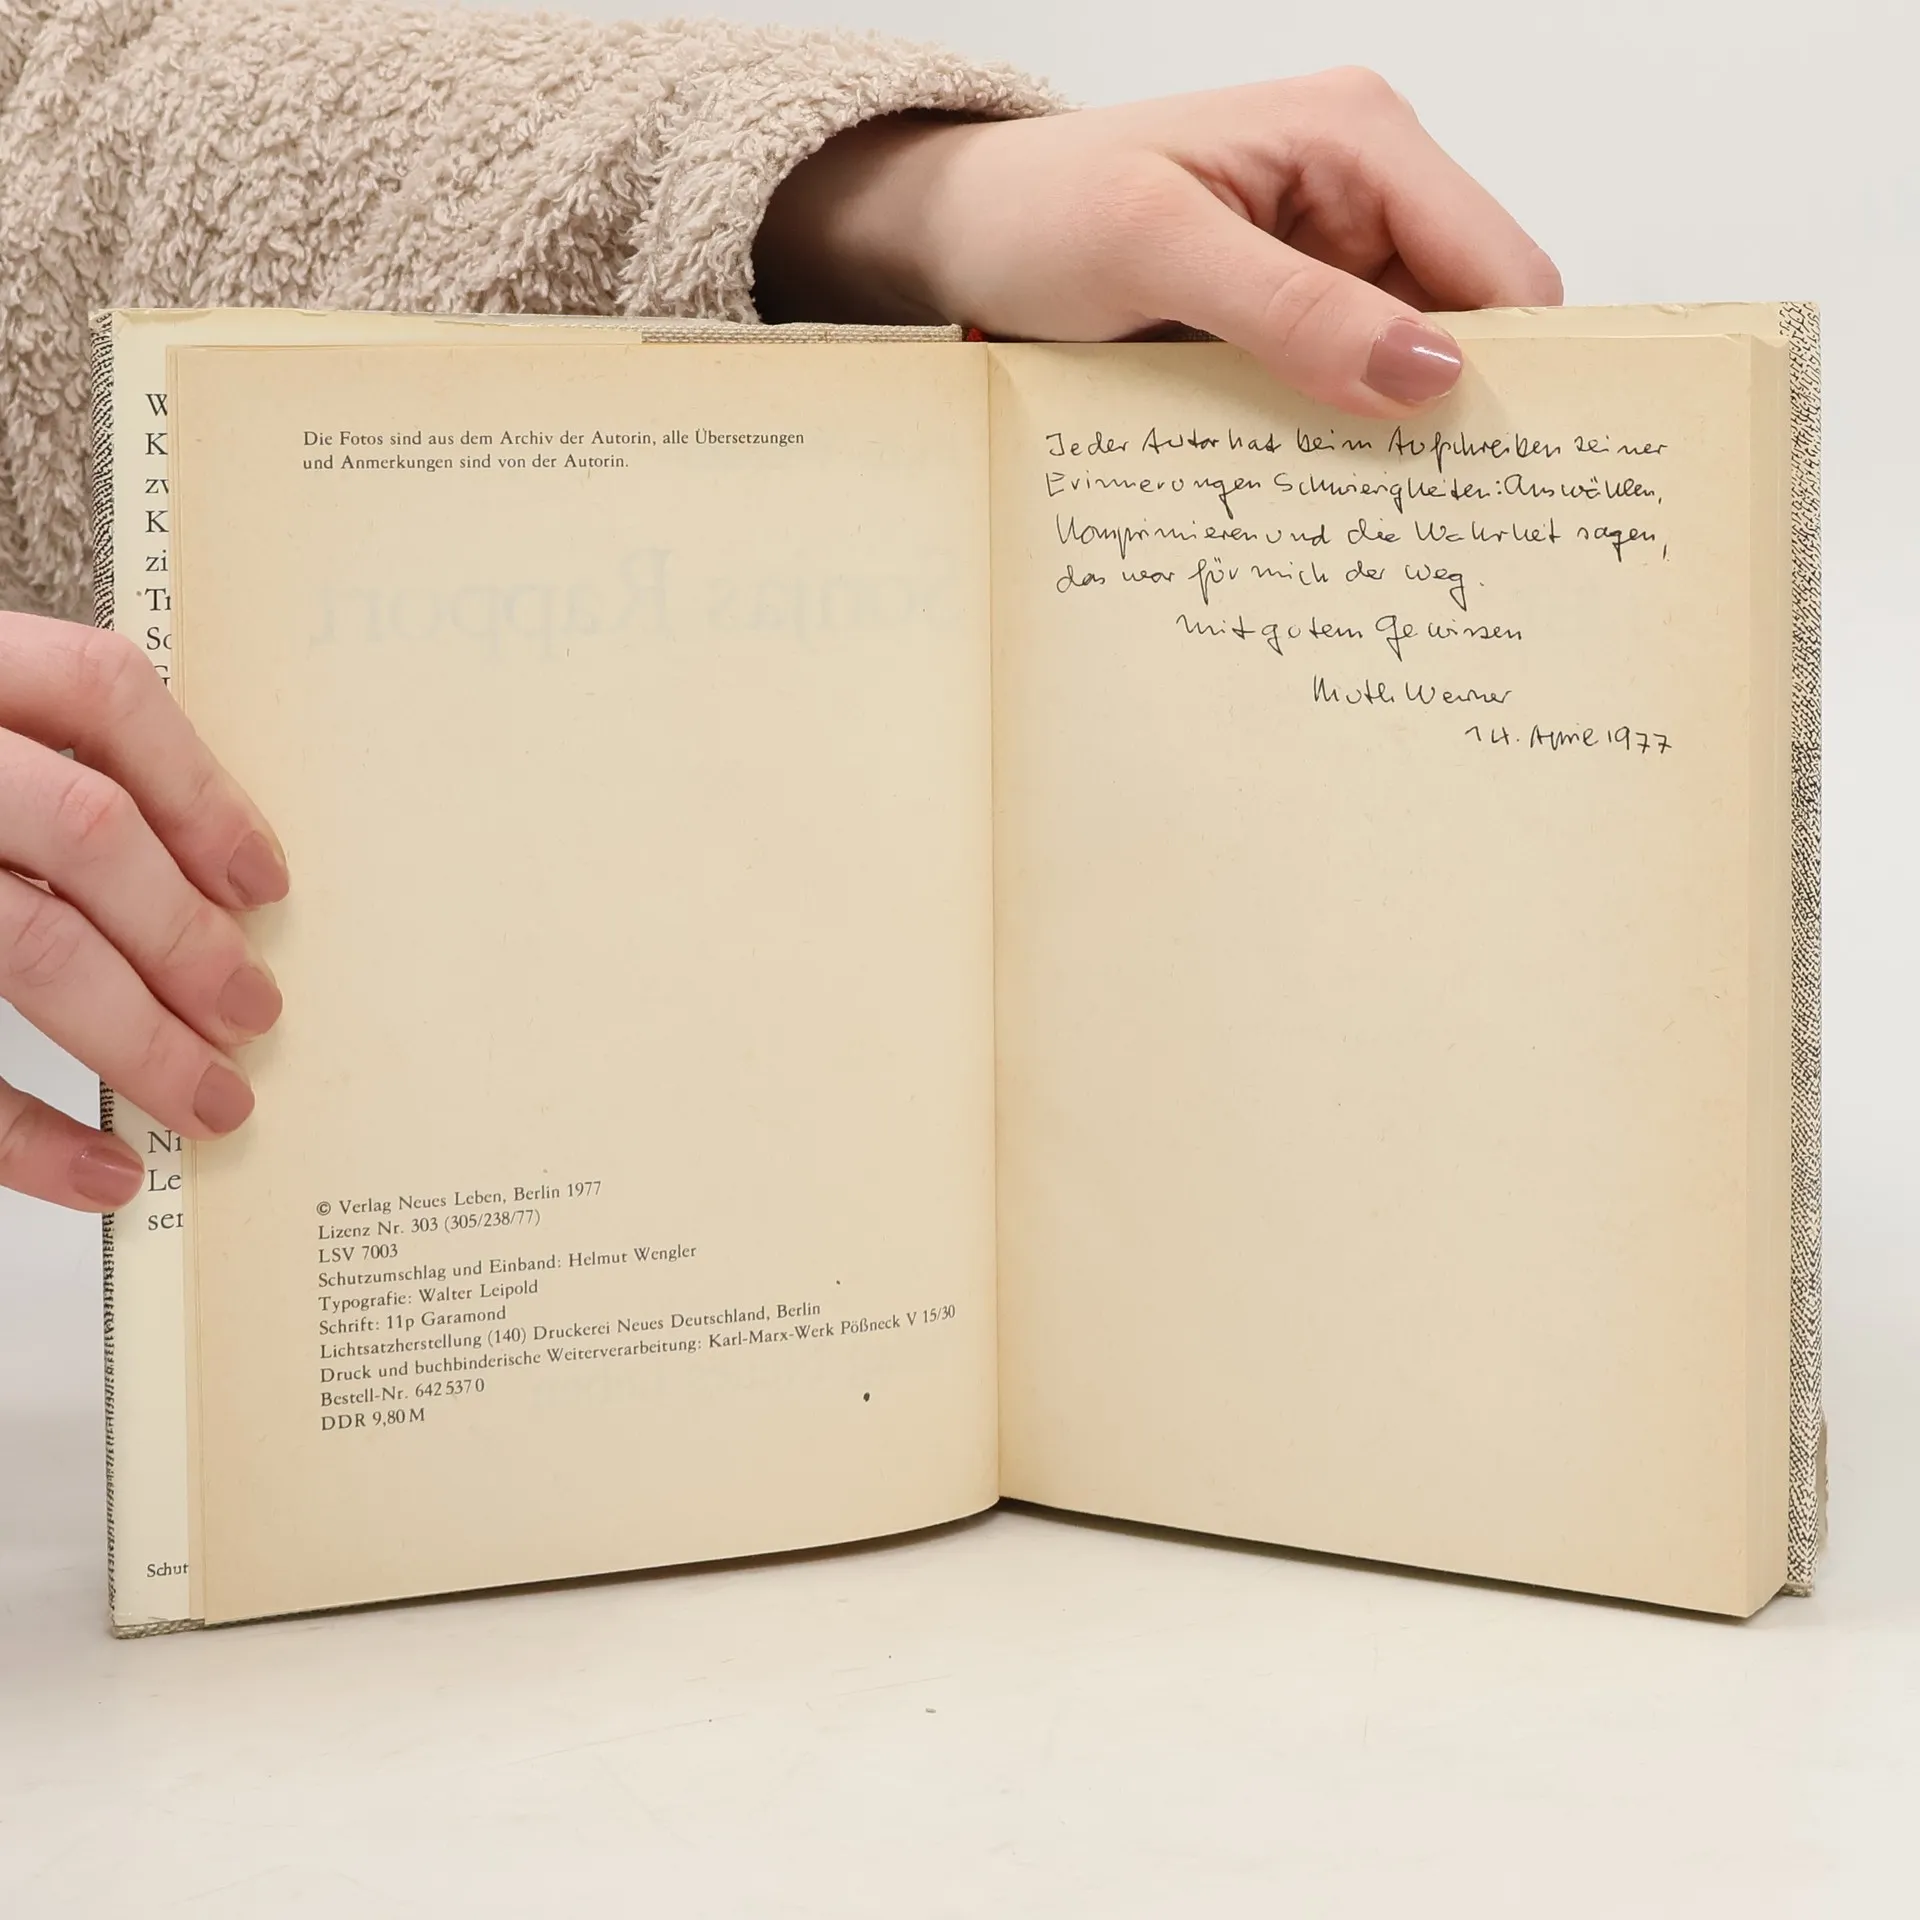 W
K
zw
K
zi
Tr
So
G
Ni
Le
ser
Schut
Die Fotos sind aus dem Archiv der Autorin, alle Übersetzungen
und Anmerkungen sind von der Autorin.
© Verlag Neues Leben, Berlin 1977
Lizenz Nr. 303 (305/238/77)
LSV 7003
Schutzumschlag und Einband: Helmut Wengler
Typografie: Walter Leipold
Schrift: 11p Garamond
Lichtsatzherstellung (140) Druckerei Neues Deutschland, Berlin
Druck und buchbinderische Weiterverarbeitung: Karl-Marx-Werk Pößneck V 15/30
Bestell-Nr. 642 537 0
DDR 9,80 M
Jeder Autor hat beim Aufschreiben seiner
Erinnerungen Schwierigkeiten: Auswählen,
Komprimieren und die Wahrheit sagen,
das war für mich der Weg.
Mit gutem Gewissen
Ruth Werner
14. April 1977